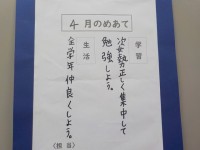 4月のめあて
学習
姿勢正しく集中して
勉強しよう。
生活
全学年仲良くしよう。